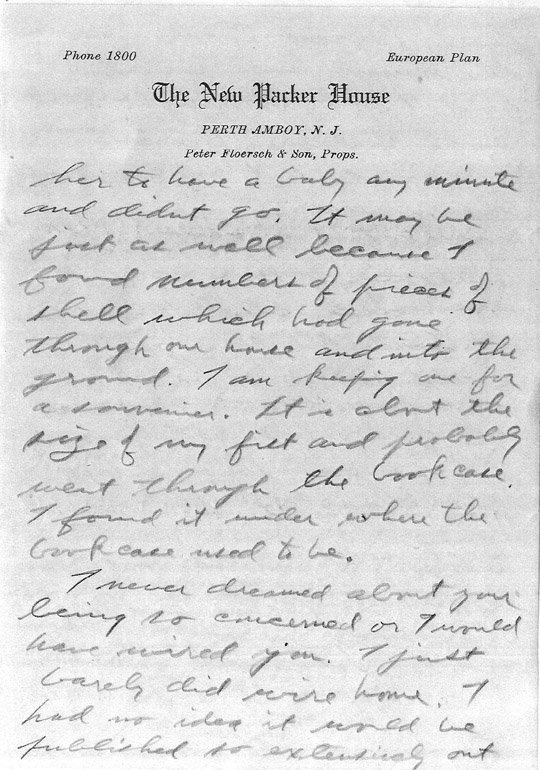 Phone 1800
European Plan
The New Packer House
PERTH AMBOY, N. J.
Peter Floersch & Son, Props.
her to have a baby any minute
and didnt go. It may be
just as well because I
found numbers of pieces of
shell which had gone
through our house and into the
ground. I am keeping one for
a souvenir. It is about the
size of my fist and probably
went through the bookcase.
I found it under where the
bookcase used to be.
I never dreamed about your
being so concerned or I would
have wired you. I just
barely did wire home. I
had no idea it would be
published so extensively out